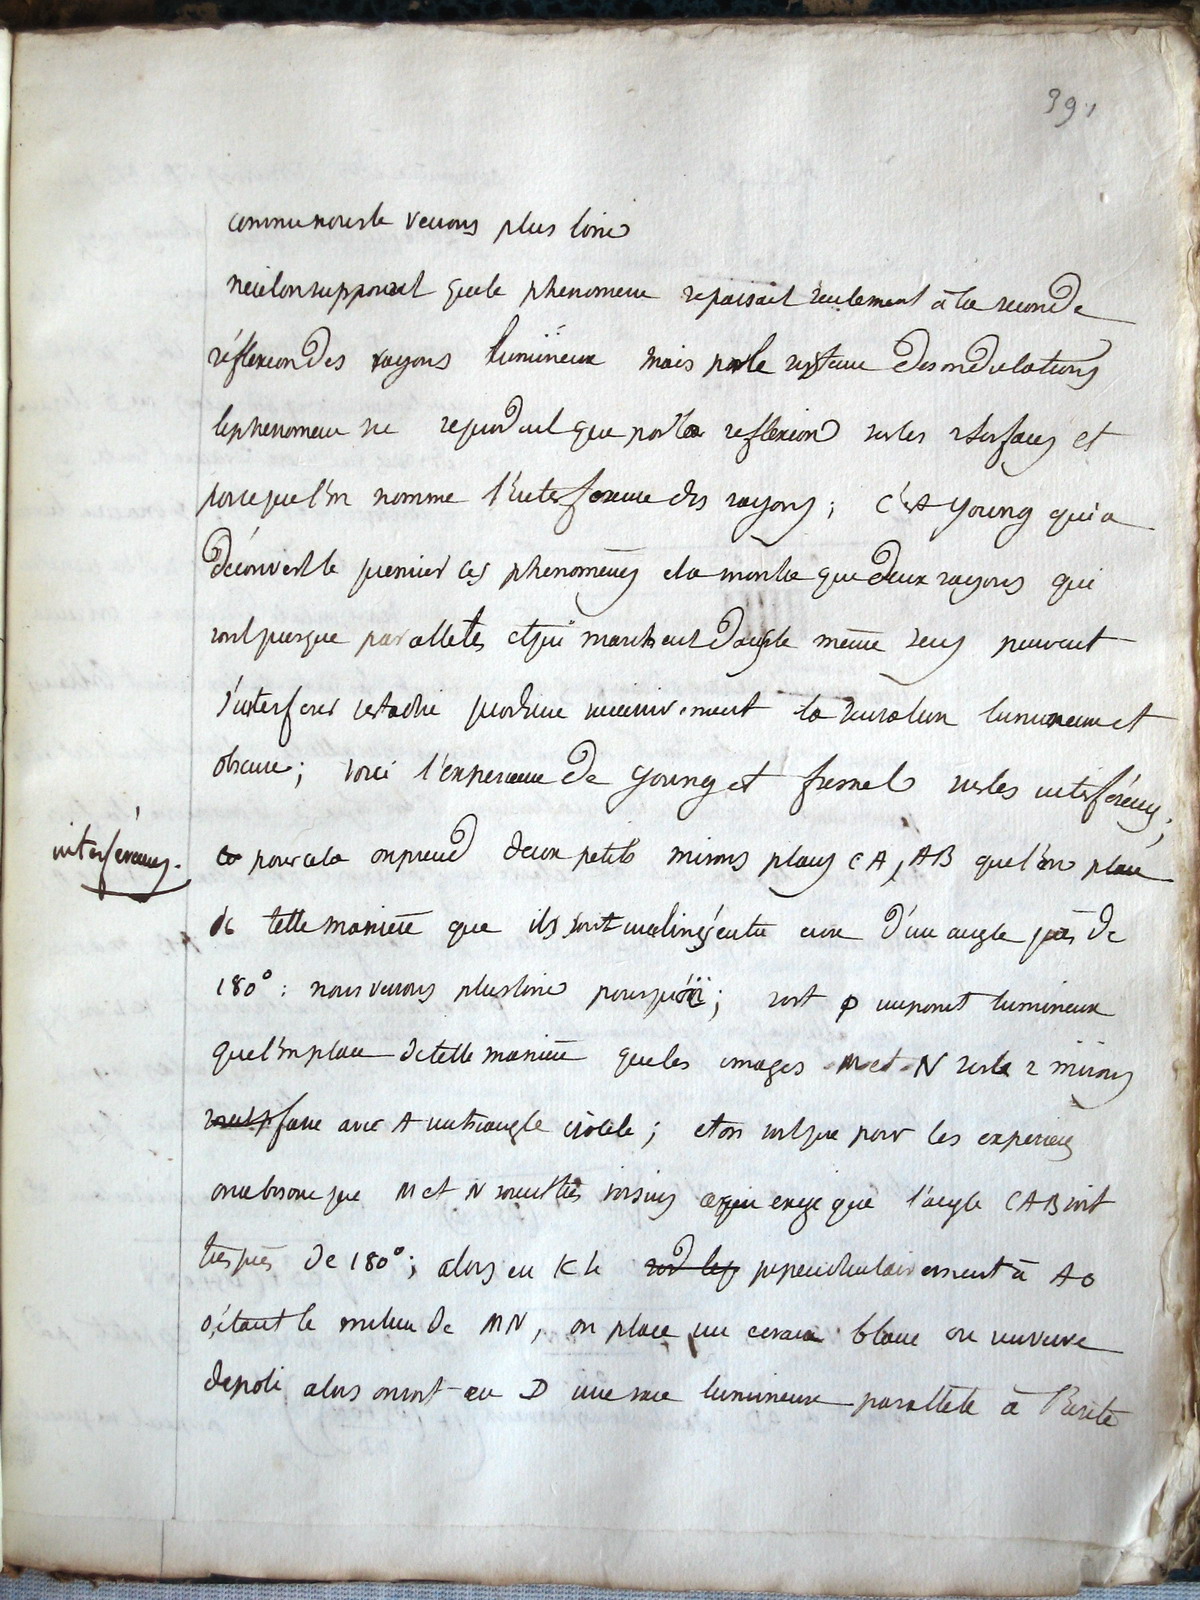 39.
comme nous le verrons plus loin
Newton supposait que le phenomene se passait seulement à la seconde
réflexion des rayons lumineux mais par le systeme des ondulations
le phenomene se reproduit que par la reflexion sur les 2 surfaces et
par ce que l'on nomme l'interference des rayons; c'est Young qui a
découvert le premier ces phenomènes et a montré que deux rayons qui
sont presque paralleles et qui marchent dans le même sens peuvent
s'interferer c'est a dire produire successivement la sensation lumineuse et
obscure; voici l'experience de Young et fresnel sur les interférences;
interférences.
pour cela on prend deux petits miroirs plans CA, AB que l'on place
de telle maniere que ils sont inclinés entre eux d'un angle près de
180°: nous verrons plus loin pourquoi; soit p un point lumineux
que l'on place de telle maniere que les images M et N sur les 2 miroirs
fasse avec A un triangle isocele; et on sait que pour les experiences
on a besoin que M et N soient très voisins ce qui exige que l'angle CAB soit
très près de 180°; alors en K h perpendiculairement à AO
O, étant le milieu de MN, on place un ecran blanc ou un verre
depoli alors on voit en D une raie lumineuse parallele à l'arrète